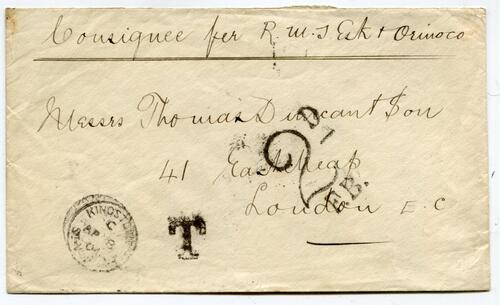 Consignee per R.M.S Esk & Orinoco
Messrs Thomas Duncan & Son
41 Eastcheap
London E.C
2D
F.B.
T
KINGSTOWN
C
AP